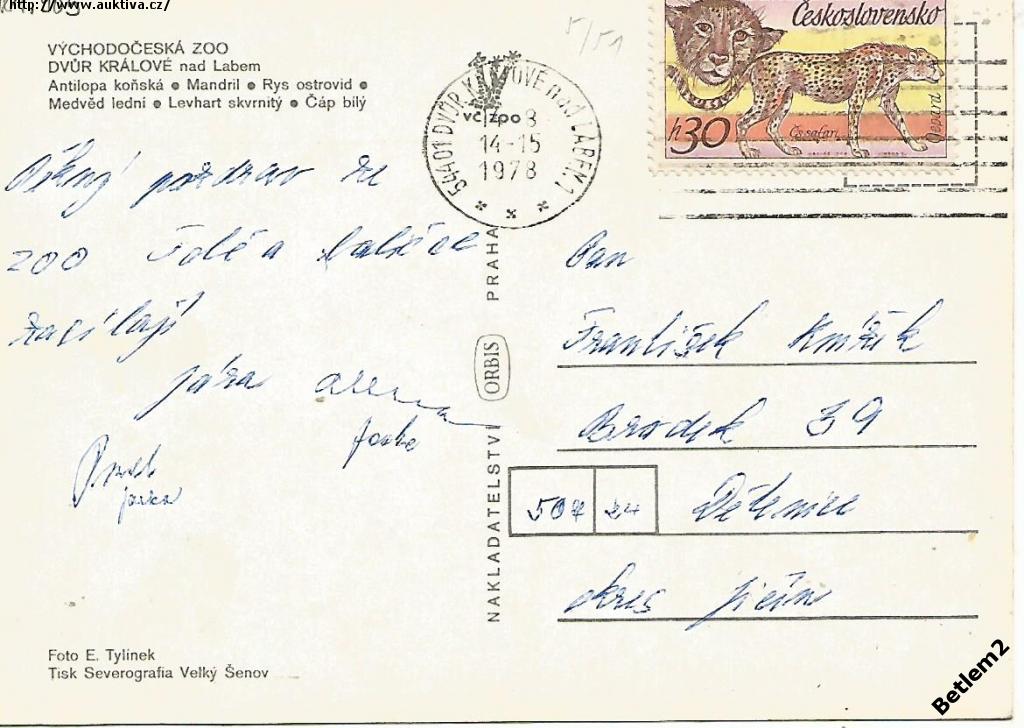 http://www.auktiva.cz/
5/51
VÝCHODOČESKÁ ZOO
DVŮR KRÁLOVÉ nad Labem
Antilopa koňská ● Mandril ● Rys ostrovid ●
Medvěd lední ● Levhart skvrnitý ● Čáp bílý
544 01 DVŮR KRÁLOVÉ nad LABEM 1
vč zoo
14-15
1978
Československo
h30
Čs safari
Gepard
pozdrav ze
ZOO
zasílají
Jára
Pavel
Jarka
NAKLADATELSTVÍ ORBIS PRAHA
Pan
František
Brodek 39
507 24 Dětenice
okres Jičín
Foto E. Tylínek
Tisk Severografia Velký Šenov
Betlem2